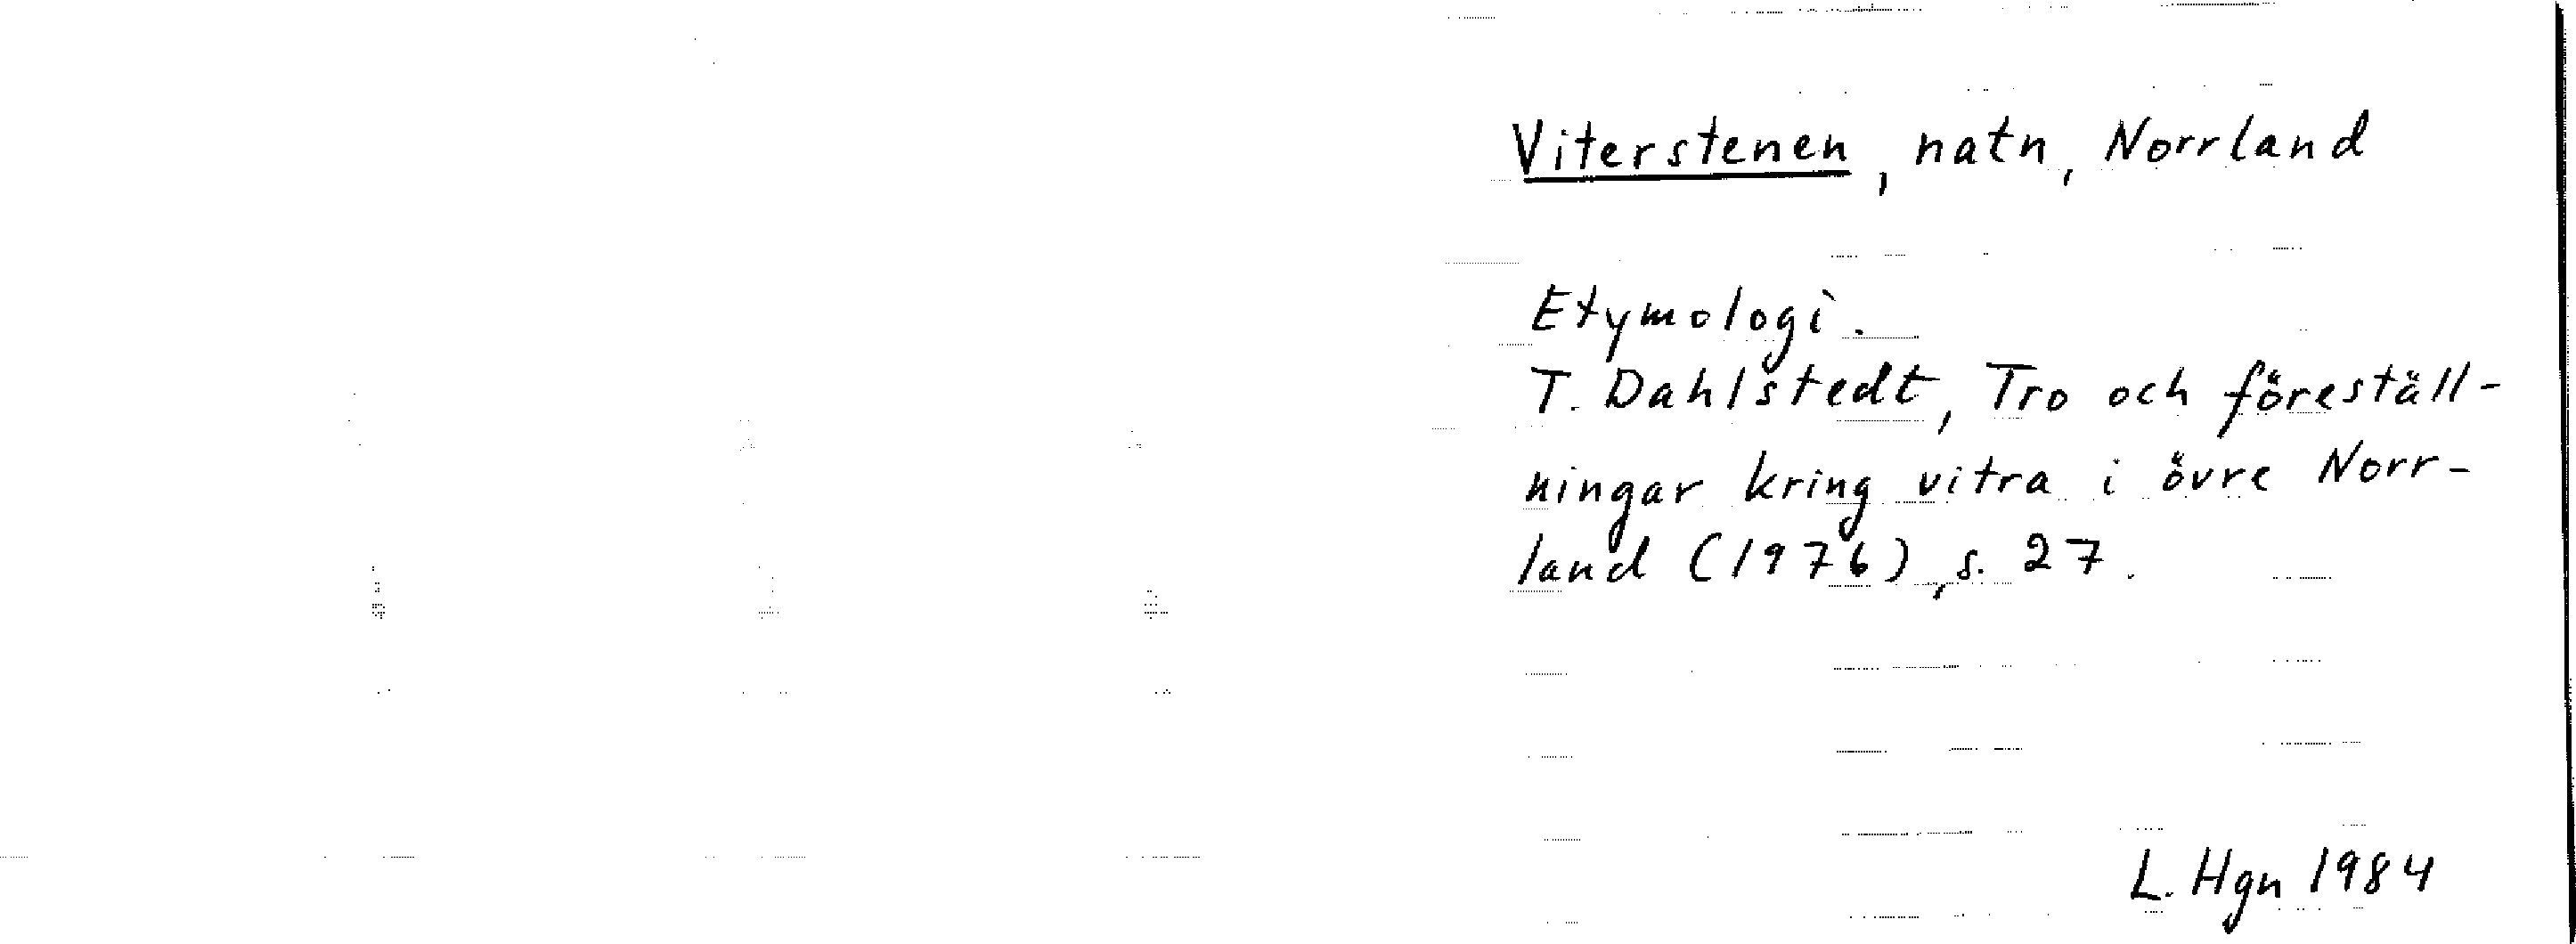 Viterstenen, natn, Norrland
Etymologi.
T. Dahlstedt, Tro och föreställ-
ningar kring vitra i övre Norr-
land (1976), s. 27.
L. Hgn 1984